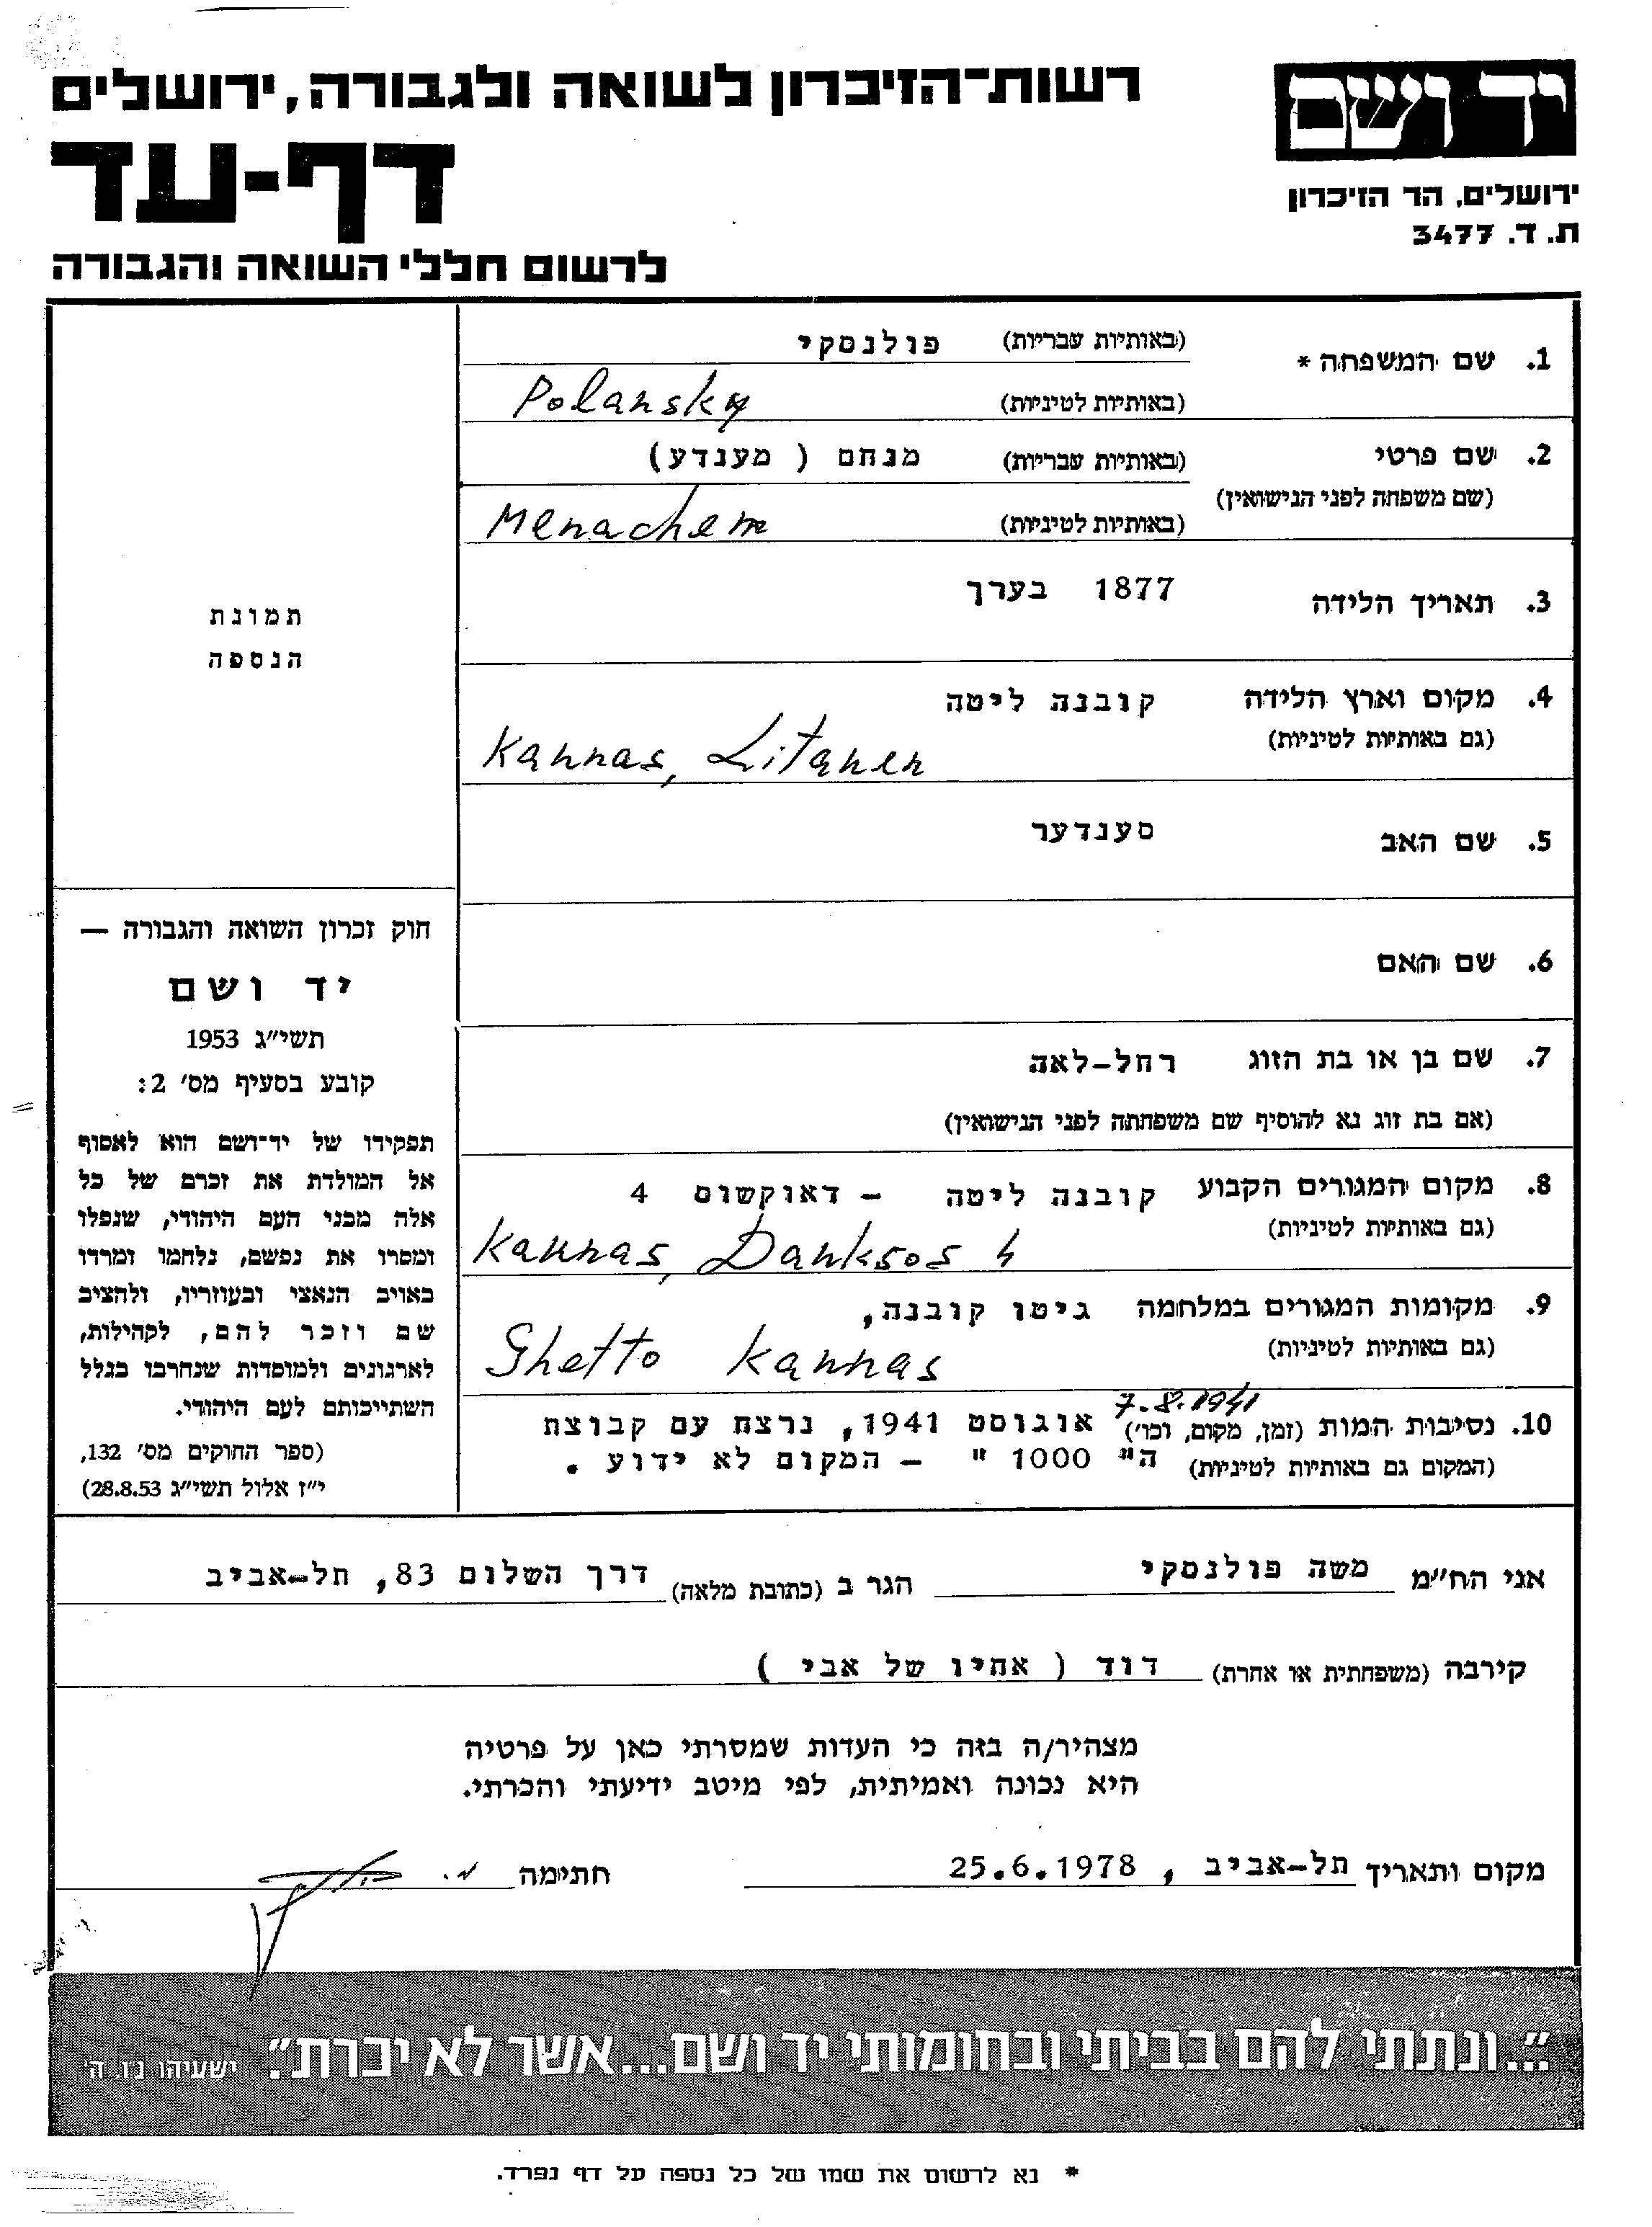 יד ושם
ירושלים, הר הזיכרון
ת. ד. 3477
רשות־הזיכרון לשואה ולגבורה, ירושלים
דף-עד
לרשום חללי השואה והגבורה
1. שם המשפחה * (באותיות עבריות) פולנסקי
(באותיות לטיניות) Polansky
2. שם פרטי (באותיות עבריות) מנחם ( מענדע)
(שם משפחה לפני הנישואין)
(באותיות לטיניות) Menachem
3. תאריך הלידה 1877 בערך
4. מקום וארץ הלידה קובנה ליטה
(גם באותיות לטיניות) Kaunas, Litauen
5. שם האב סענדער
6. שם האם
7. שם בן או בת הזוג רחל-לאה
(אם בת זוג נא להוסיף שם משפחתה לפני הנישואין)
8. מקום המגורים הקבוע קובנה ליטה - דאוקשוס 4
(גם באותיות לטיניות) Kaunas, Dauksos 4
9. מקומות המגורים במלחמה גיטו קובנה,
(גם באותיות לטיניות) Ghetto Kaunas
7.8.1941
10. נסיבות המות (זמן, מקום, וכו') אוגוסט 1941, נרצח עם קבוצת
(המקום גם באותיות לטיניות) ה" 1000 " - המקום לא ידוע .
תמונת
הנספה
חוק זכרון השואה והגבורה —
יד ושם
תשי"ג 1953
קובע בסעיף מס' 2:
תפקידו של יד־ושם הוא לאסוף
אל המולדת את זכרם של כל
אלה מבני העם היהודי, שנפלו
ומסרו את נפשם, נלחמו ומרדו
באויב הנאצי ובעוזריו, ולהציב
שם וזכר להם, לקהילות,
לארגונים ולמוסדות שנחרבו בגלל
השתייכותם לעם היהודי.
(ספר החוקים מס' 132,
י"ז אלול תשי"ג 28.8.53)
אני הח"מ משה פולנסקי הגר ב (כתובת מלאה) דרך השלום 83, תל-אביב
קירבה (משפחתית או אחרת) דוד ( אחיו של אבי )
מצהיר/ה בזה כי העדות שמסרתי כאן על פרטיה
היא נכונה ואמיתית, לפי מיטב ידיעתי והכרתי.
מקום ותאריך תל-אביב , 25.6.1978 חתימה
"...ונתתי להם בביתי ובחומותי יד ושם...אשר לא יכרת". ישעיהו נז ה'
* נא לרשום את שמו של כל נספה על דף נפרד.